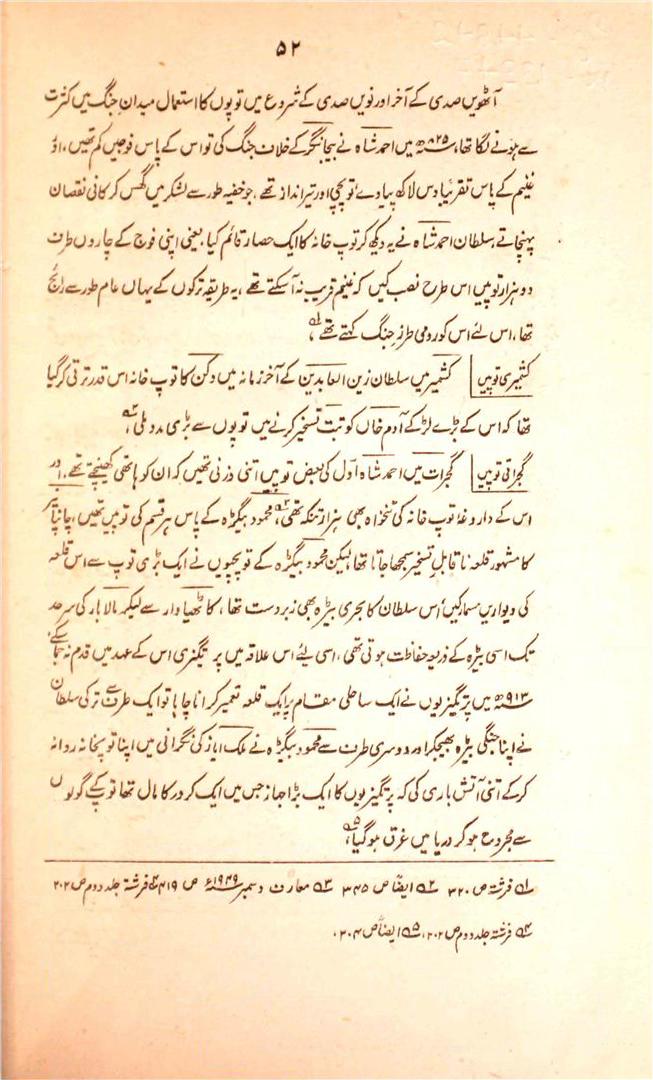 ۵۲
آٹھویں صدی کے آخر اور نویں صدی کے شروع میں توپوں کا استعمال میدانِ جنگ میں کثرت
سے ہونے لگا تھا، ۸۲۵ھ میں احمد شاہ نے بیجانگر کے خلاف جنگ کی تو اس کے پاس فوجیں کم تھیں، اور
غنیم کے پاس تقریباً دس لاکھ پیادے توپچی اور تیر انداز تھے، جو خفیہ طور سے لشکر میں گھس کر کافی نقصان
پہنچاتے، سلطان احمد شاہ نے یہ دیکھ کر توپ خانہ کا ایک حصار قائم کیا، یعنی اپنی فوج کے چاروں طرف
دو ہزار توپیں اس طرح نصب کیں کہ غنیم قریب نہ آ سکتے تھے، یہ طریقہ ترکوں کے یہاں عام طور سے رائج
تھا، اس لئے اس کو رومی طرزِ جنگ کہتے تھے ۱؎،
کشمیری توپیں کشمیر میں سلطان زین العابدین کے آخر زمانہ میں دکن کا توپ خانہ اس قدر ترقی کر گیا
تھا کہ اس کے بڑے لڑکے آدم خاں کو تبت تسخیر کرنے میں توپوں سے بڑی مدد ملی ۲؎،
گجراتی توپیں گجرات میں احمد شاہ اوّل کی بعض توپیں اتنی وزنی تھیں کہ ان کو ہاتھی کھینچتے تھے، اور
اس کے داروغۂ توپ خانہ کی تنخواہ بھی ہزار تنکہ تھی ۳؎، محمود بیگڑہ کے پاس ہر قسم کی توپیں تھیں، چانپانیر
کا مشہور قلعہ ناقابلِ تسخیر سمجھا جاتا تھا، لیکن محمود بیگڑہ کے توپچیوں نے ایک بڑی توپ سے اس قلعہ
کی دیواریں مسمار کیں ۴؎ اس سلطان کا بحری بیڑہ بھی زبردست تھا، کاٹھیاوار سے لیکر مالابار کی سرحد
تک اسی بیڑہ کے ذریعہ حفاظت ہوتی تھی، اسی لئے اس علاقہ میں پرتگیزی اس کے عہد میں قدم نہ جما سکے،
۹۱۳ھ میں پرتگیزیوں نے ایک ساحلی مقام پر ایک قلعہ تعمیر کرانا چاہا تو ایک طرف سے ترکی سلطان
نے اپنا جنگی بیڑہ بھیجکر اور دوسری طرف سے محمود بیگڑہ نے ملک ایاز کی نگرانی میں اپنا توپخانہ روانہ
کر کے اتنی آتش باری کی کہ پرتگیزیوں کا ایک بڑا جہاز جس میں ایک کرور کا مال تھا توپ کے گولوں
سے مجروح ہو کر دریا میں غرق ہو گیا ۵؎،
۱؎ فرشتہ ص ۳۲۰ ۲؎ ایضاً ص ۳۴۵ ۳؎ معارف دسمبر ۱۹۴۹ء ص ۴۱۹ ۴؎ فرشتہ جلد دوم ص ۲۰۲
۴؎ فرشتہ جلد دوم ص ۲۰۲، ۵؎ ایضاً ص ۲۰۴،